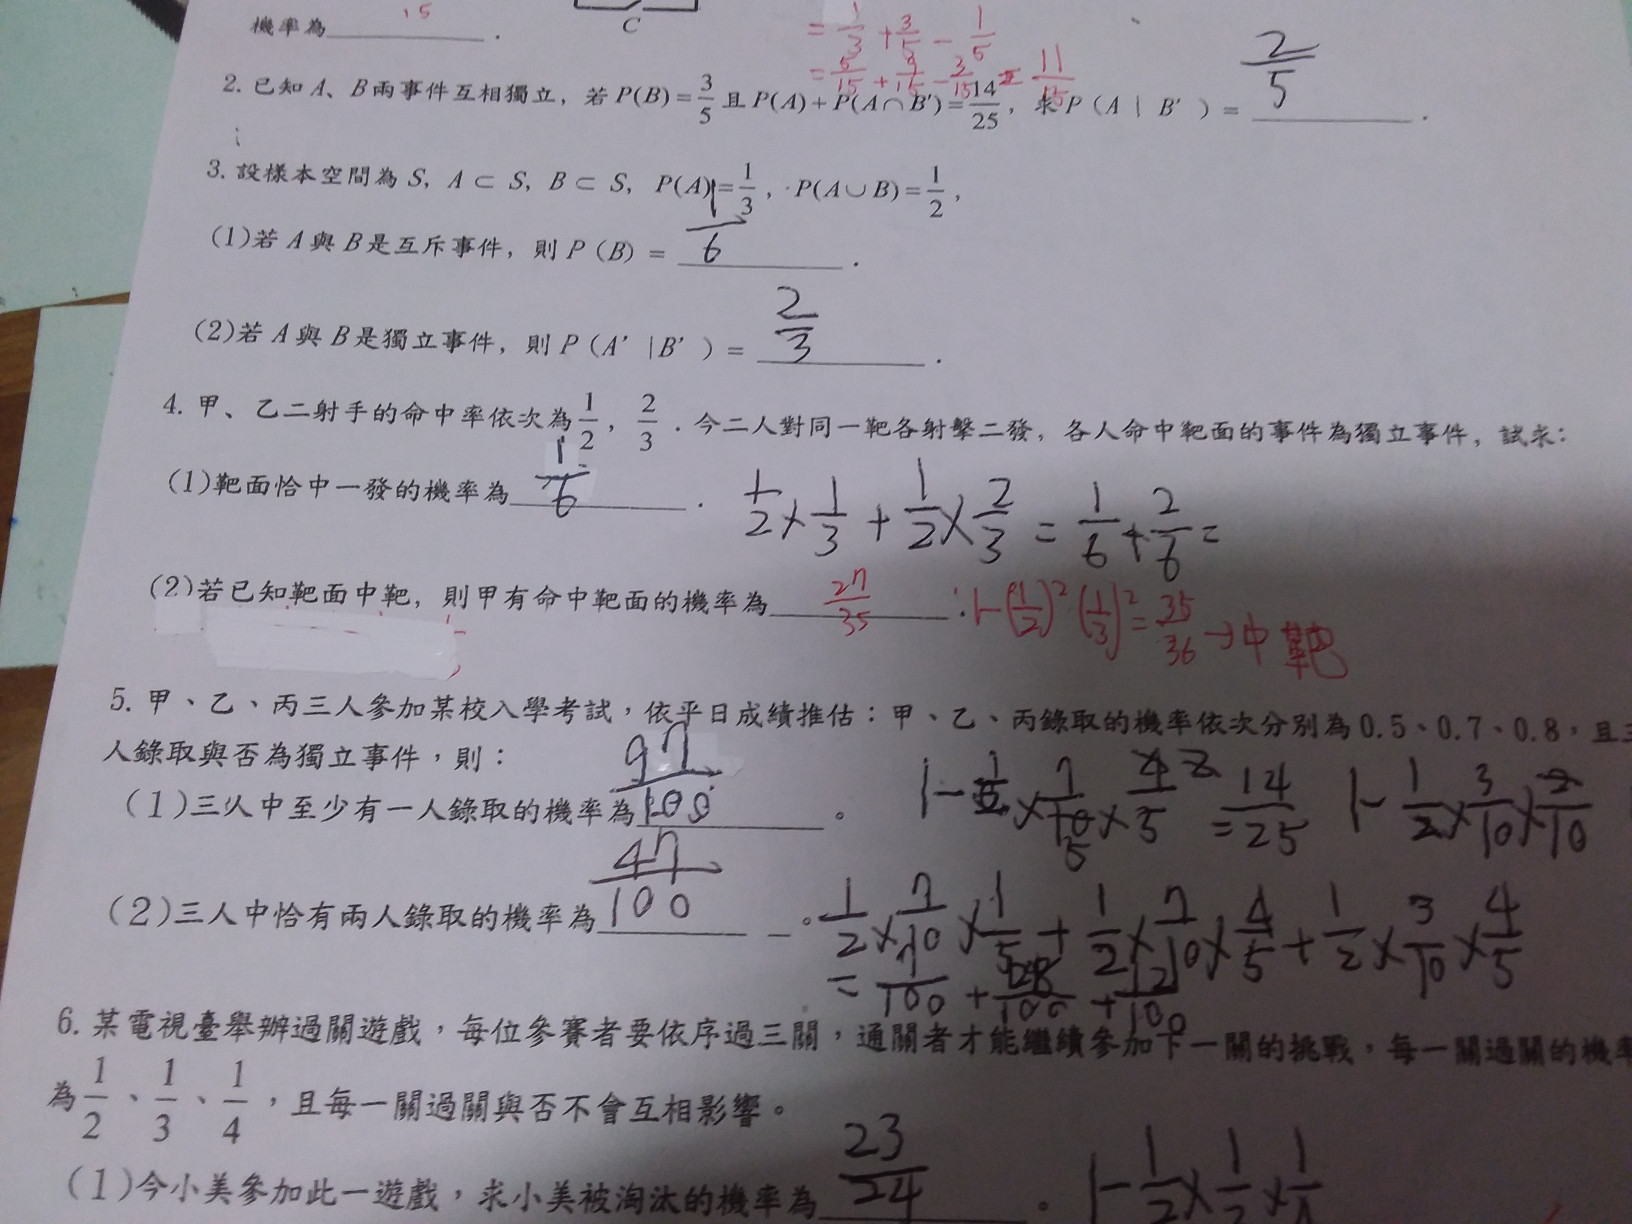 機率為 15 .
C
= 1/3 + 3/5 - 1/5
= 5/15 + 9/15 - 3/15 = 11/15
2. 已知 A、B兩事件互相獨立，若 P(B) = 3/5 且 P(A) + P(A∩B′) = 14/25，求 P（A | B′ ）= 2/5 .
3. 設樣本空間為 S, A ⊂ S, B ⊂ S, P(A) = 1/3 , P(A∪B) = 1/2 ,
(1)若 A 與 B 是互斥事件，則 P（B）= 1/6 .
(2)若 A 與 B 是獨立事件，則 P（A′ |B′ ）= 2/3 .
4. 甲、乙二射手的命中率依次為 1/2 , 2/3 . 今二人對同一靶各射擊二發，各人命中靶面的事件為獨立事件，試求：
(1)靶面恰中一發的機率為 1/6 . 1/2 × 1/3 + 1/2 × 2/3 = 1/6 + 2/6 =
(2)若已知靶面中靶，則甲有命中靶面的機率為 27/35 . 1-(1/2)² (1/3)² = 35/36 → 中靶
5. 甲、乙、丙三人參加某校入學考試，依平日成績推估：甲、乙、丙錄取的機率依次分別為0.5、0.7、0.8，且三
人錄取與否為獨立事件，則：
（1）三人中至少有一人錄取的機率為 97/100 。 1 - 1/2 × 7/10 × 4/5 = 14/25 1 - 1/2 × 3/10 × 2/10
（2）三人中恰有兩人錄取的機率為 47/100 。 1/2 × 7/10 × 1/5 + 1/2 × 7/10 × 4/5 + 1/2 × 3/10 × 4/5
= 7/100 + 28/100 + 12/100
6. 某電視臺舉辦過關遊戲，每位參賽者要依序過三關，通關者才能繼續參加下一關的挑戰，每一關過關的機率
為 1/2 、 1/3 、 1/4 ，且每一關過關與否不會互相影響。
（1）今小美參加此一遊戲，求小美被淘汰的機率為 23/24 。 1 - 1/2 × 1/3 × 1/4